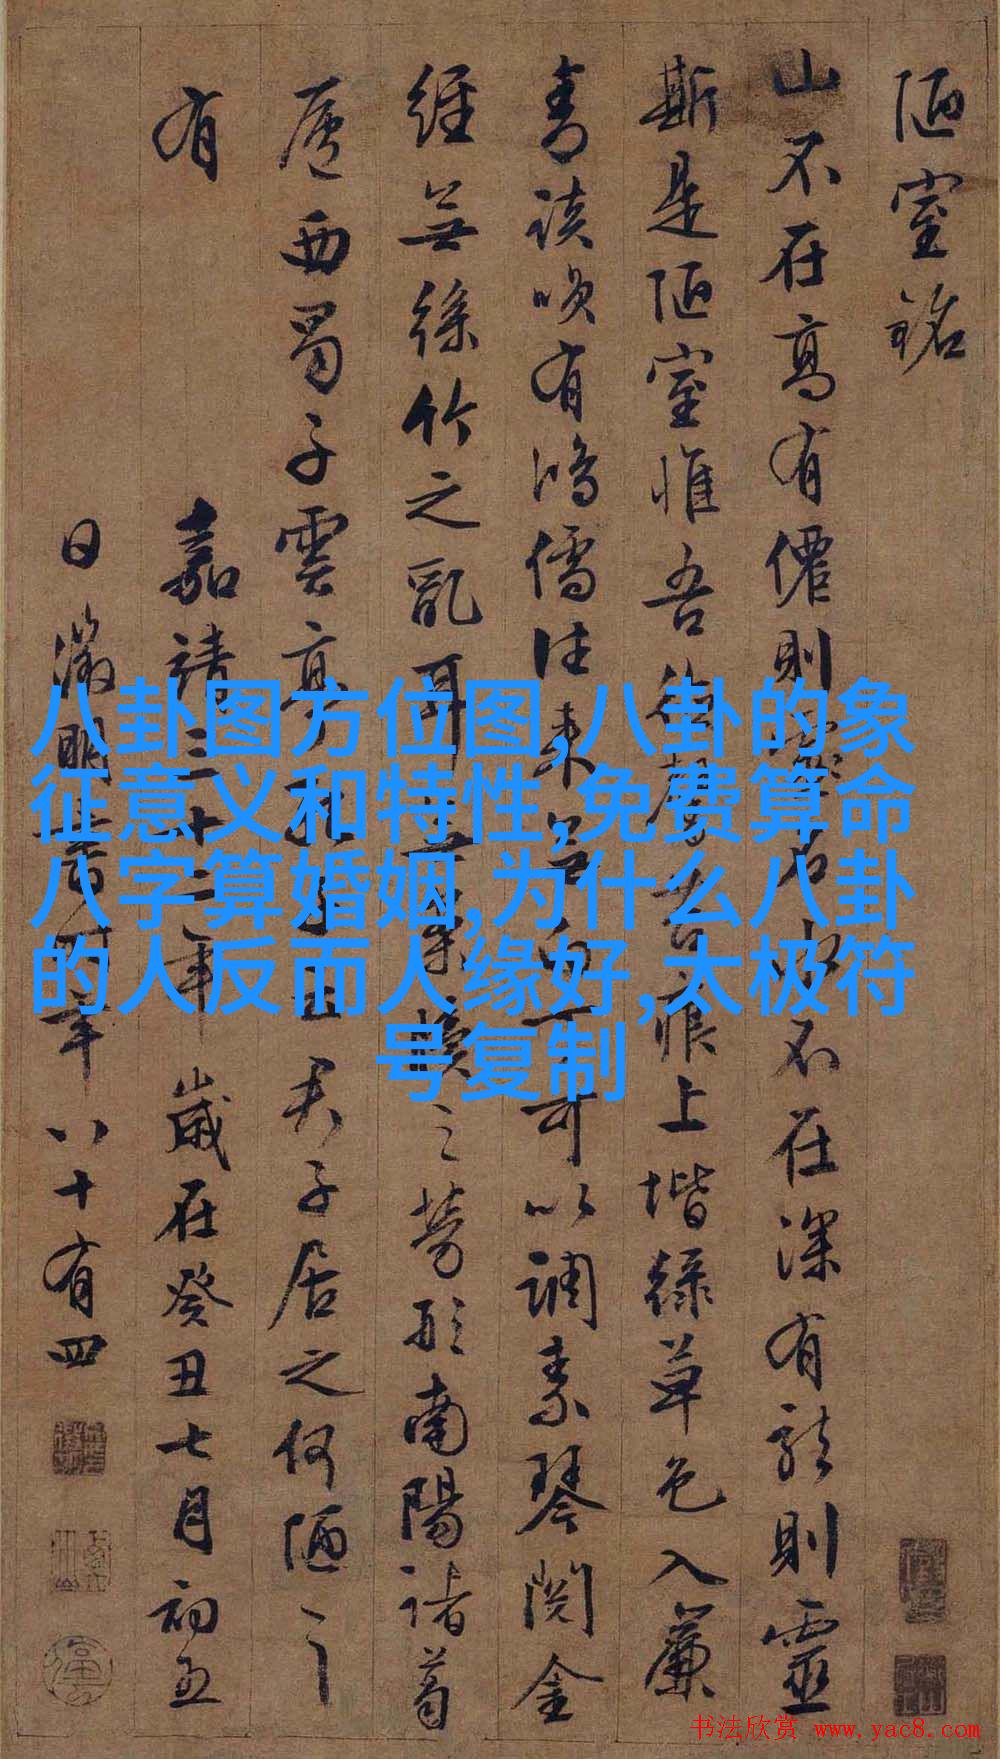 陋室銘
山不在高有僊則名水不在深有龍則靈
斯是陋室惟吾德馨苔痕上堦綠草色入簾
青談咲有鴻儒往來無白丁可以調素琴閱金
經無絲竹之亂耳無案牘之勞形南陽諸葛
廬西蜀子雲亭孔子曰君子居之何陋之
有
嘉靖三十二年歲在癸丑七月初五
日徵明書時年八十有四
八卦图方位图,八卦的象
征意义和特性,免费算命
八字算婚姻,为什么八卦
的人反而人缘好,太极符
号复制
书法欣赏 www.yac8.com